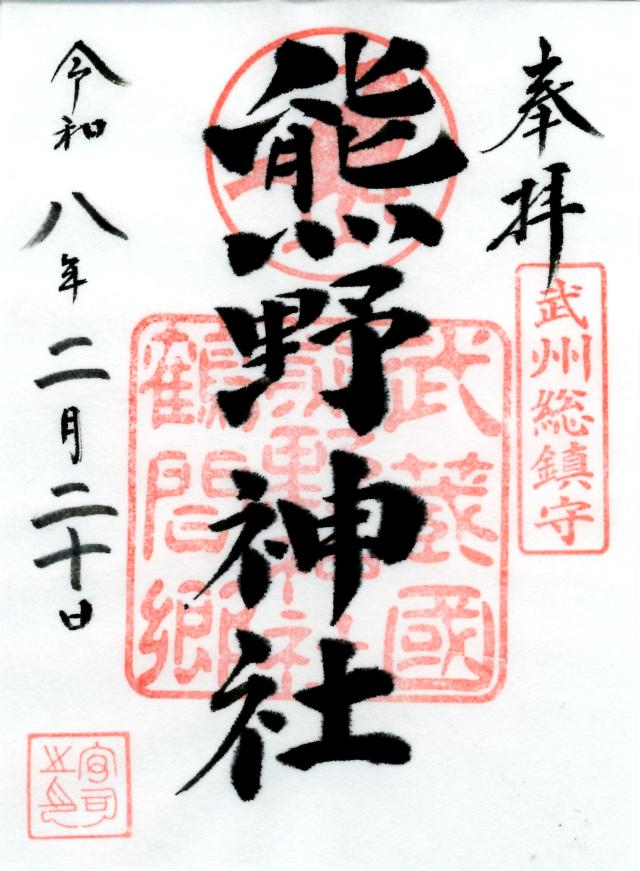 奉拝
武州総鎮守
熊野神社
武蔵國
熊野神社
鶴間郷
令和八年二月二十日
宮司之印